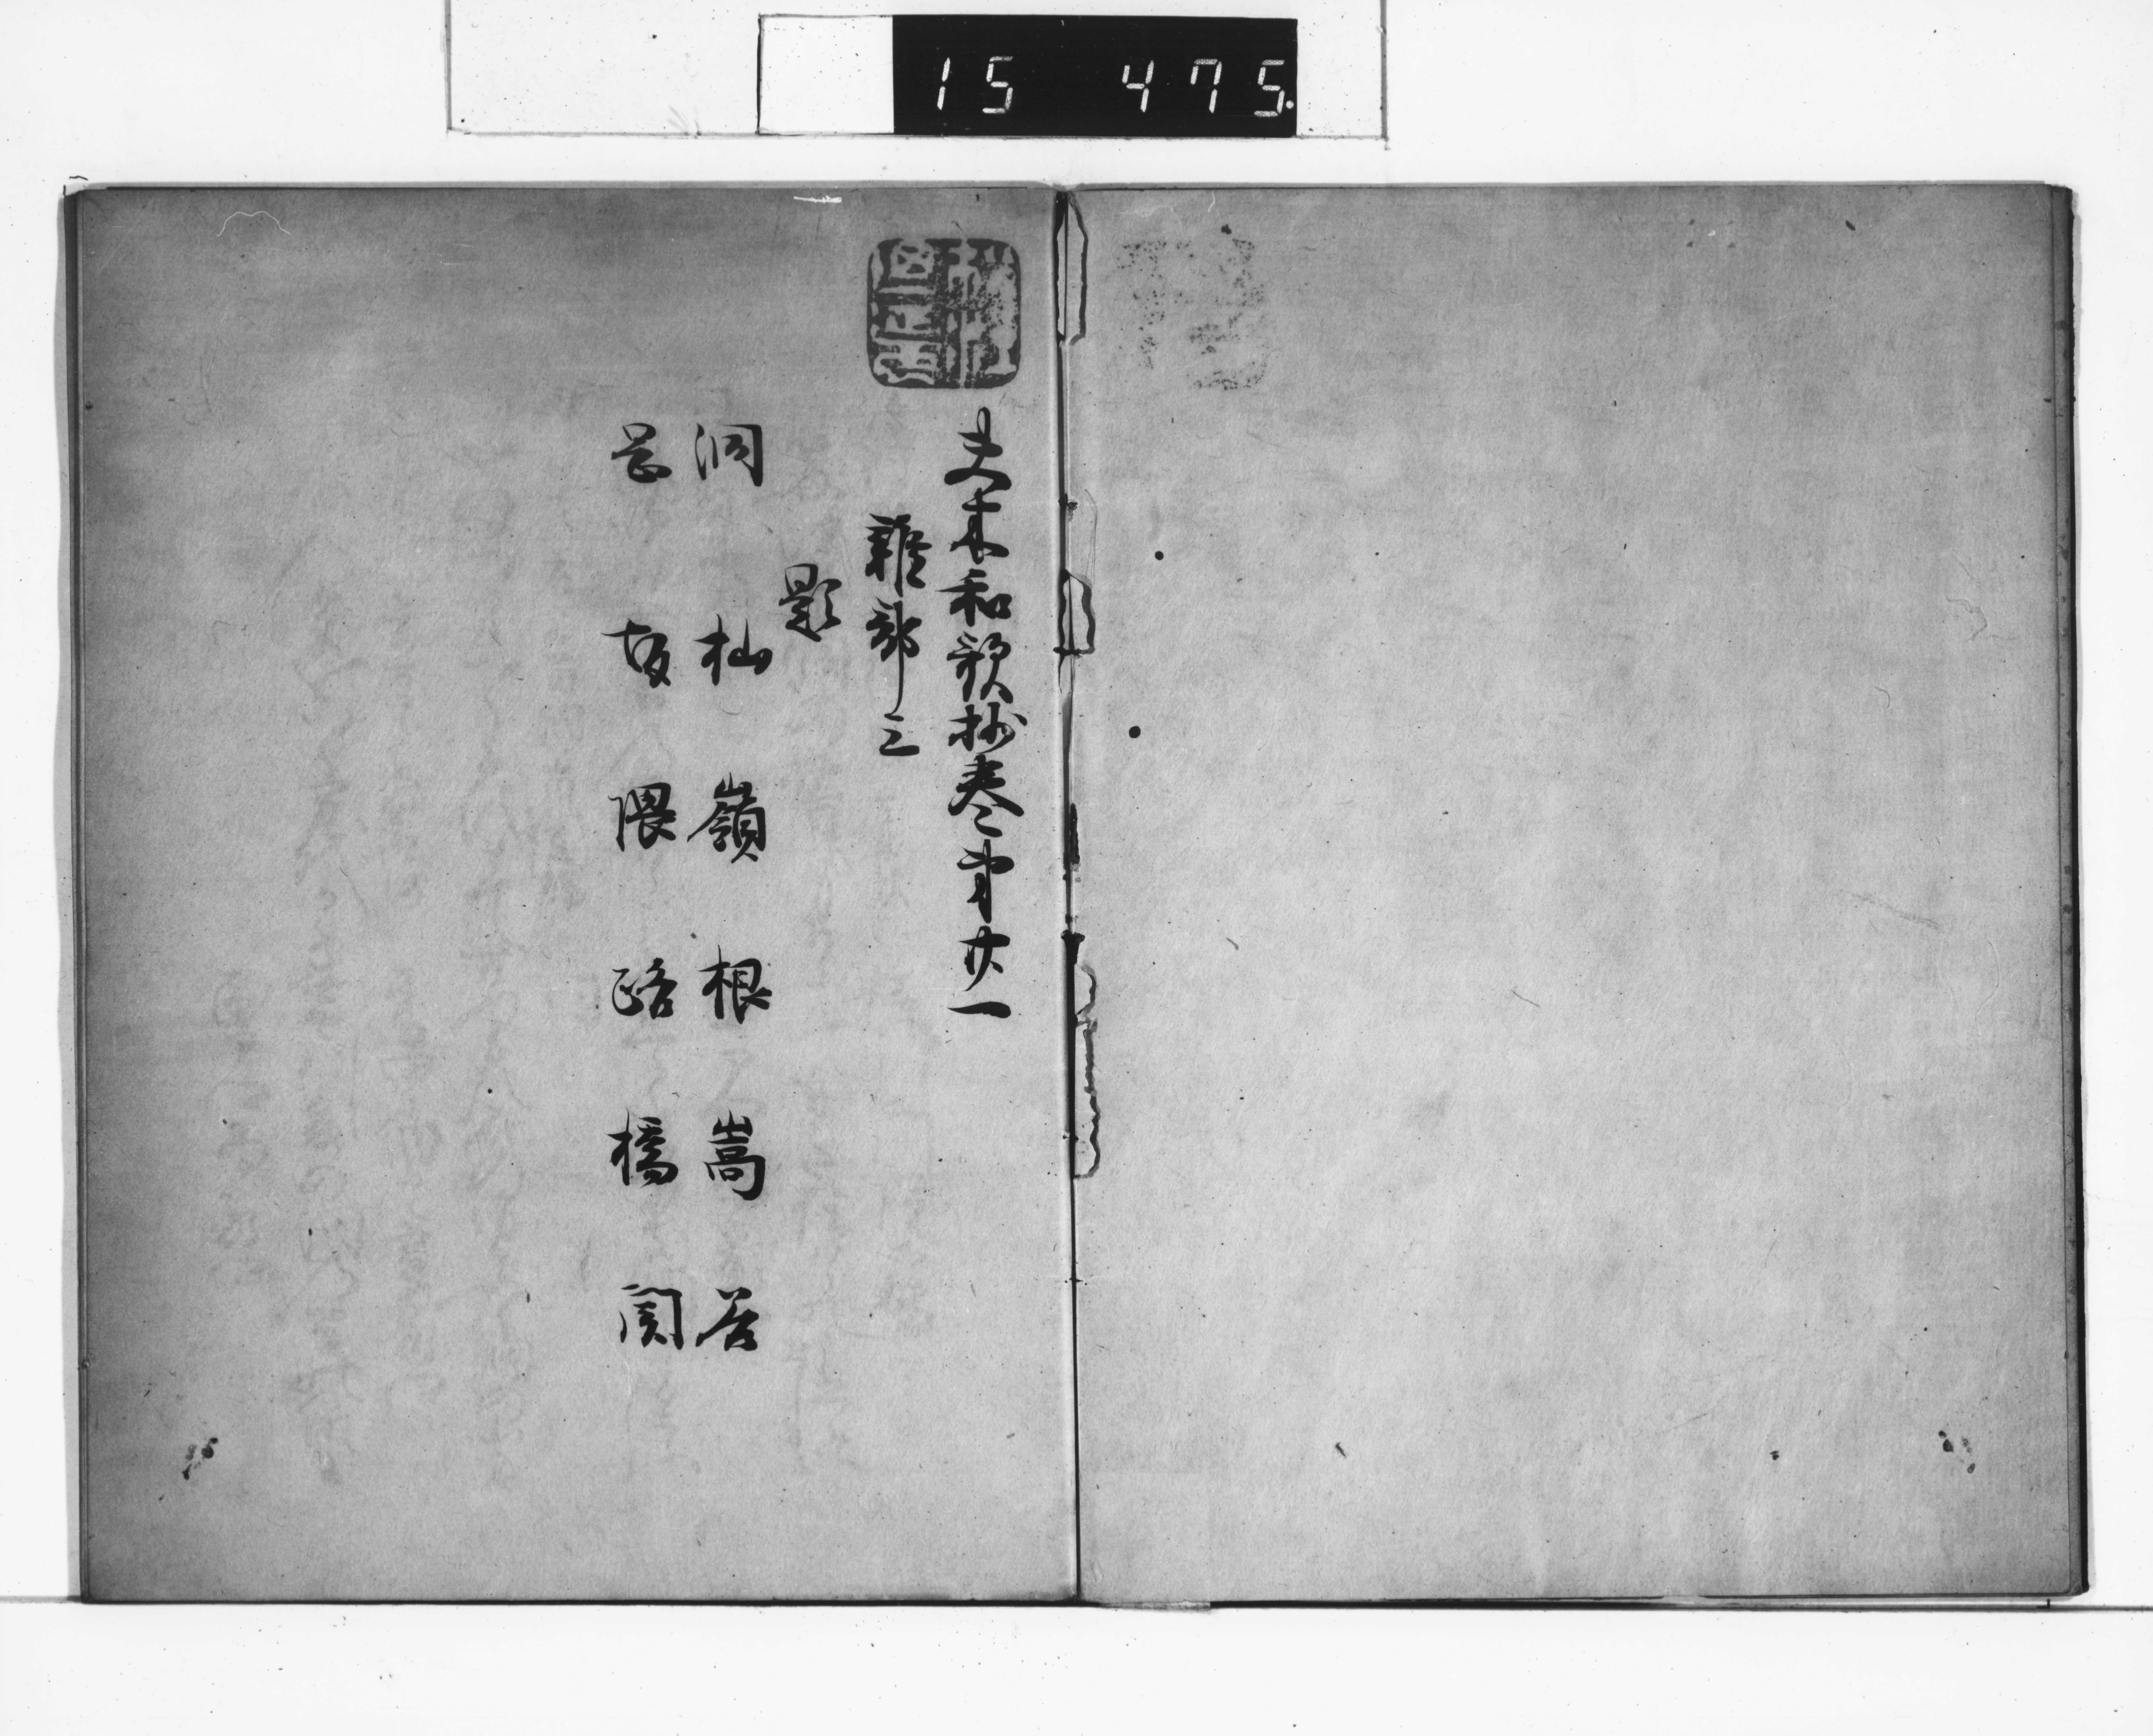 15 475.
夫木和歌抄巻第廿一
雑部三
題
洞 杣 嶺 根 嵩 谷
岡 坂 隈 路 橋 関